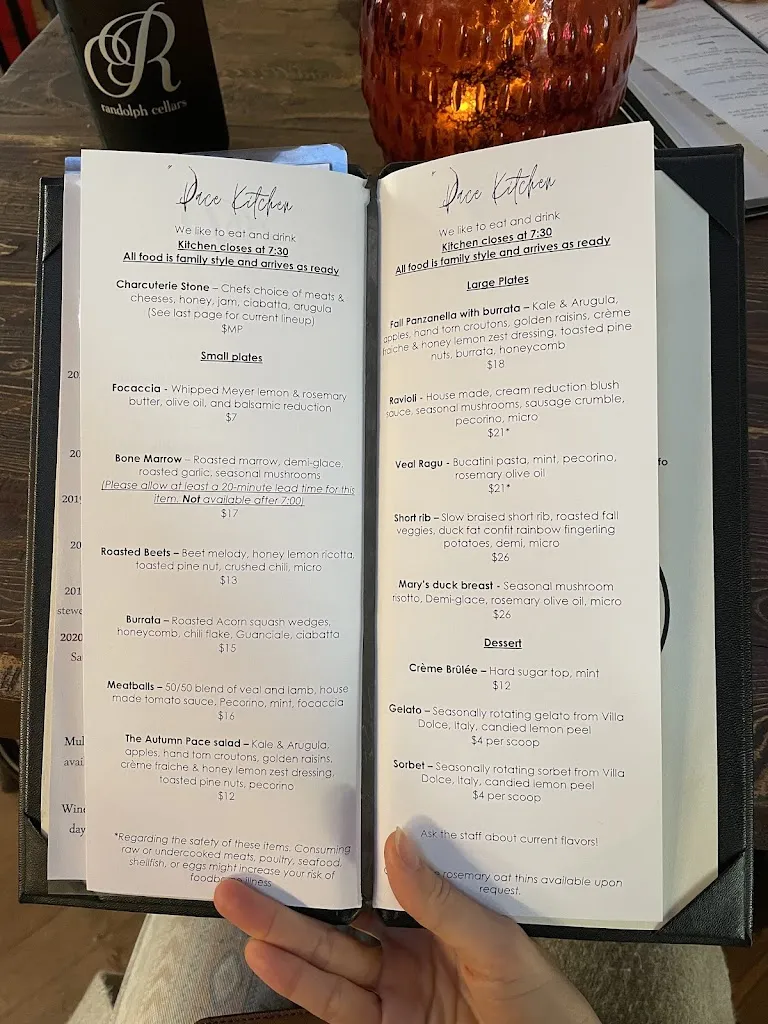 R
randolph cellars
Pace Kitchen
We like to eat and drink
Kitchen closes at 7:30
All food is family style and arrives as ready
Charcuterie Stone – Chefs choice of meats &
cheeses, honey, jam, ciabatta, arugula
(See last page for current lineup)
$MP
Small plates
Focaccia - Whipped Meyer lemon & rosemary
butter, olive oil, and balsamic reduction
$7
Bone Marrow – Roasted marrow, demi-glace,
roasted garlic, seasonal mushrooms
(Please allow at least a 20-minute lead time for this
item. Not available after 7:00)
$17
Roasted Beets – Beet melody, honey lemon ricotta,
toasted pine nut, crushed chili, micro
$13
Burrata – Roasted Acorn squash wedges,
honeycomb, chili flake, Guanciale, ciabatta
$15
Meatballs – 50/50 blend of veal and lamb, house
made tomato sauce, Pecorino, mint, focaccia
$16
The Autumn Pace salad – Kale & Arugula,
apples, hand torn croutons, golden raisins,
crème fraiche & honey lemon zest dressing,
toasted pine nuts, pecorino
$12
*Regarding the safety of these items. Consuming
raw or undercooked meats, poultry, seafood,
shellfish, or eggs might increase your risk of
illness
Pace Kitchen
We like to eat and drink
Kitchen closes at 7:30
All food is family style and arrives as ready
Large Plates
Fall Panzanella with burrata – Kale & Arugula,
apples, hand torn croutons, golden raisins, crème
fraiche & honey lemon zest dressing, toasted pine
nuts, burrata, honeycomb
$18
Ravioli - House made, cream reduction blush
sauce, seasonal mushrooms, sausage crumble,
pecorino, micro
$21*
Veal Ragu - Bucatini pasta, mint, pecorino,
rosemary olive oil
$21*
Short rib – Slow braised short rib, roasted fall
veggies, duck fat confit rainbow fingerling
potatoes, demi, micro
$26
Mary's duck breast - Seasonal mushroom
risotto, Demi-glace, rosemary olive oil, micro
$26
Dessert
Crème Brûlée – Hard sugar top, mint
$12
Gelato – Seasonally rotating gelato from Villa
Dolce, Italy, candied lemon peel
$4 per scoop
Sorbet – Seasonally rotating sorbet from Villa
Dolce, Italy, candied lemon peel
$4 per scoop
Ask the staff about current flavors!
rosemary oat thins available upon
request.